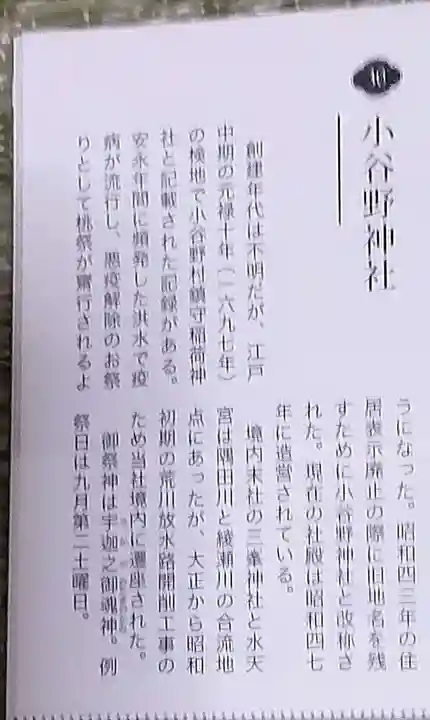 小谷野神社
創建年代は不明だが、江戸
中期の元禄十年(一六九七年)
の検地で小谷野村鎮守稲荷神
社と記載された記録がある。
安永年間に頻発した洪水で疫
病が流行し、悪疫解除のお祭
りとして桃祭が執行されるよ
うになった。昭和四三年の住
居表示廃止の際に旧地名を残
すために小谷野神社と改称さ
れた。現在の社殿は昭和四七
年に造営されている。
境内末社の三峯神社と水天
宮は隅田川と綾瀬川の合流地
点にあったが、大正から昭和
初期の荒川放水路開削工事の
ため当社境内に遷座された。
御祭神は宇迦之御魂神。例
祭日は九月第二土曜日。